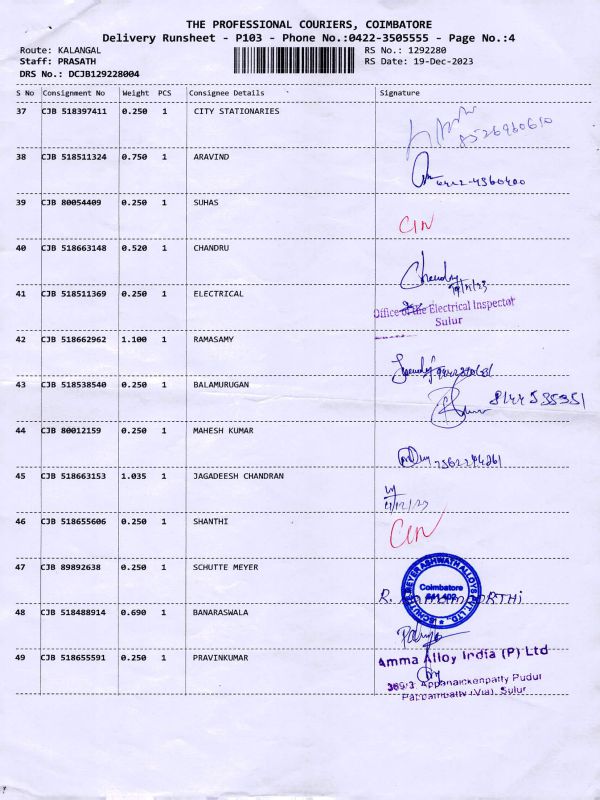 THE PROFESSIONAL COURIERS, COIMBATORE
Delivery Runsheet - P103 - Phone No.:0422-3505555 - Page No.:4
Route: KALANGAL RS No.: 1292280
Staff: PRASATH RS Date: 19-Dec-2023
DRS No.: DCJB129228004
S No Consignment No Weight PCS Consignee Details Signature
37 CJB 518397411 0.250 1 CITY STATIONARIES
8526960610
38 CJB 518511324 0.750 1 ARAVIND
0422-4560400
39 CJB 80054409 0.250 1 SUHAS
CIN
40 CJB 518663148 0.520 1 CHANDRU
Chandru
19/12/23
41 CJB 518511369 0.250 1 ELECTRICAL
Office of the Electrical Inspector
Sulur
42 CJB 518662962 1.100 1 RAMASAMY
43 CJB 518538540 0.250 1 BALAMURUGAN
8144535351
44 CJB 80012159 0.250 1 MAHESH KUMAR
45 CJB 518663153 1.035 1 JAGADEESH CHANDRAN
46 CJB 518655606 0.250 1 SHANTHI
CIN
47 CJB 89892638 0.250 1 SCHUTTE MEYER
SCHUTTE MEYER ASHWATH ALLOYS PVT. LTD.
Coimbatore
641 402
48 CJB 518488914 0.690 1 BANARASWALA
49 CJB 518655591 0.250 1 PRAVINKUMAR
Amma Alloy India (P) Ltd
369/3, Appanaickenpatty Pudur
Pappampatty (Via), Sulur